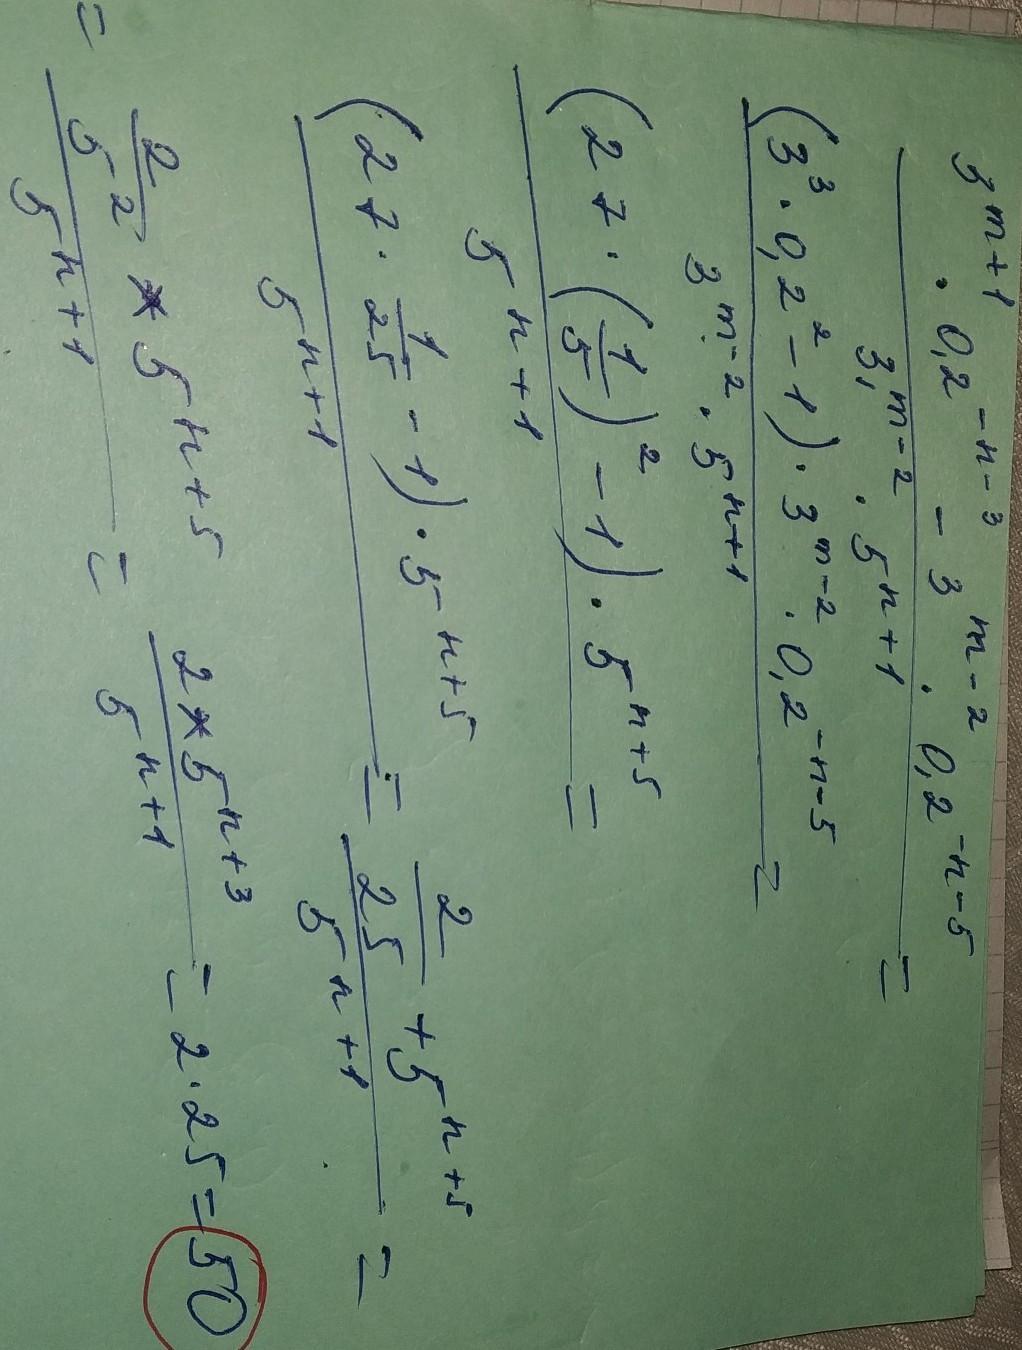 3^{m+1} · 0,2^{-n-3} - 3^{m-2} · 0,2^{-n-5}
3^{m-2} · 5^{n+1} =
(3^3 · 0,2^2 - 1) · 3^{m-2} · 0,2^{-n-5}
3^{m-2} · 5^{n+1} =
(27 · (1/5)^2 - 1) · 5^{n+5}
5^{n+1} =
(27 · 1/25 - 1) · 5^{n+5}
5^{n+1} =
2/25 + 5^{n+5}
5^{n+1} =
= 2/5^2 * 5^{n+5}
5^{n+1} =
2 * 5^{n+3}
5^{n+1} = 2 · 25 = 50